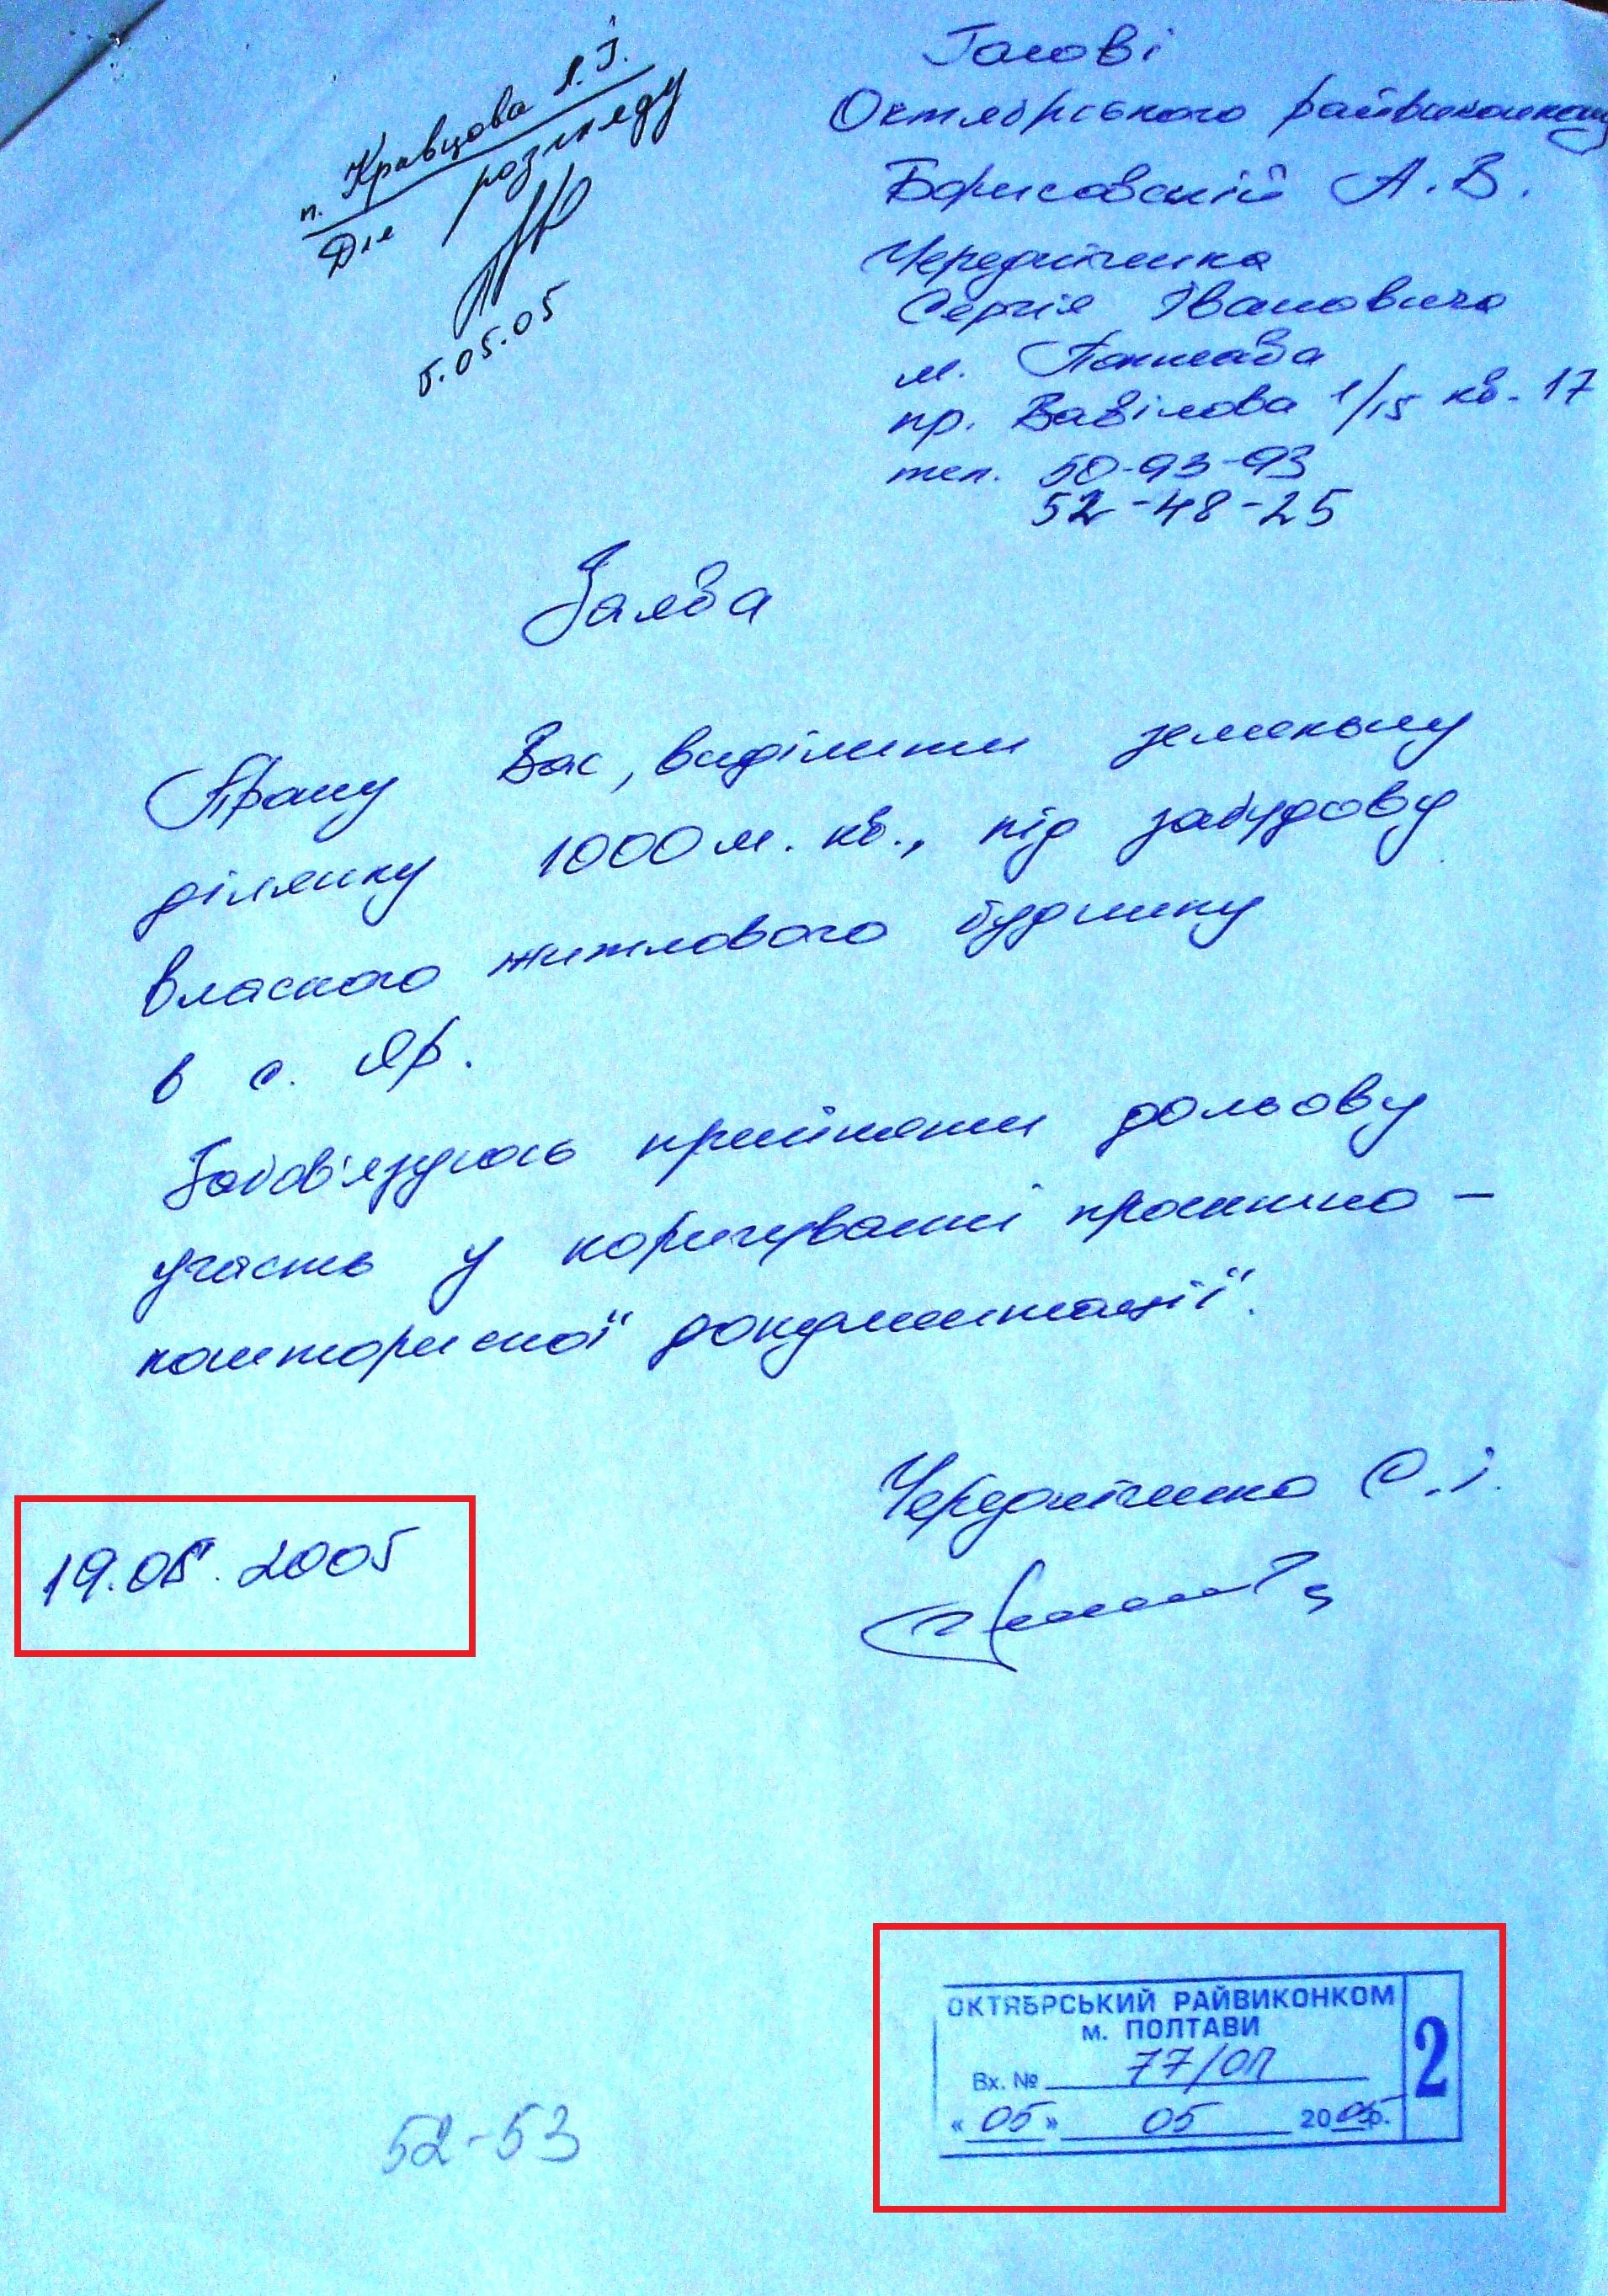 п. Кравцова Л.І.
Для розгляду
5.05.05
Голові
Октябрського райвиконкому
Борисовській А.В.
Чередніченка
Сергія Івановича
м. Полтава
пр. Вавілова 1/15 кв. 17
тел. 50-93-93
52-48-25
Заява
Прошу Вас, виділити земельну
ділянку 1000 м. кв., під забудову
власного житлового будинку
в с. Яр.
Зобов'язуюсь прийняти дольову
участь у коригуванні проектно-
кошторисної документації.
Чередніченко С.І.
19.05.2005
ОКТЯБРСЬКИЙ РАЙВИКОНКОМ
м. ПОЛТАВИ
2
Вх. № 77/ОП
«05» 05 2005р.
52-53